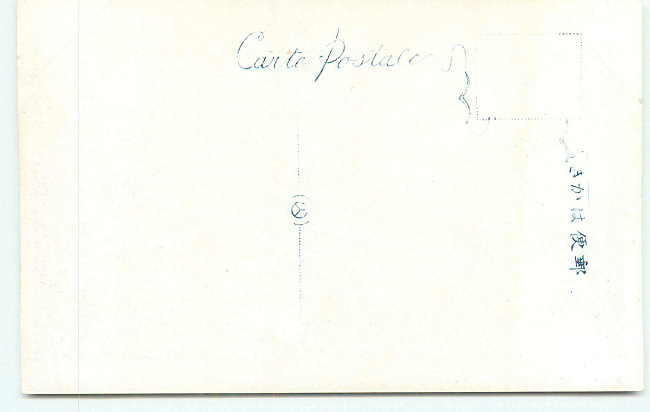 Carte Postale
郵便はかき